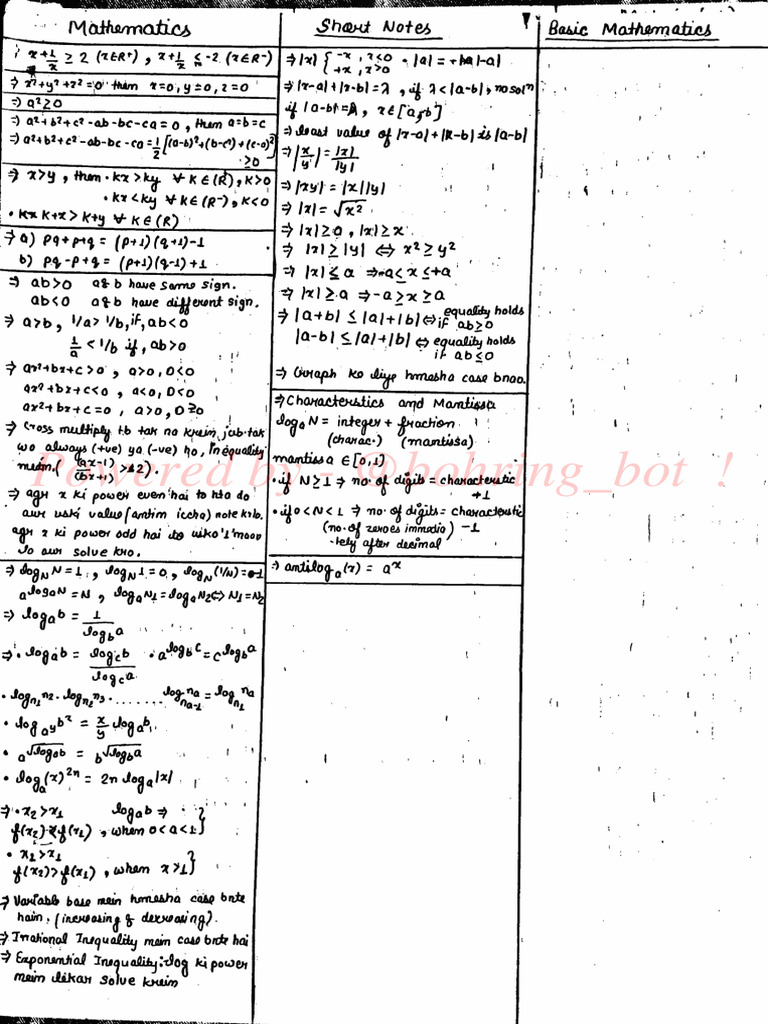 Mathematics
x+1/x ≥ 2 (x∈R⁺), x+1/x ≤ -2 (x∈R⁻)
⇒ x²+y²+z²=0 then x=0, y=0, z=0
⇒ a²≥0
⇒ a²+b²+c²-ab-bc-ca=0, then a=b=c
⇒ a²+b²+c²-ab-bc-ca=1/2[(a-b)²+(b-c)²+(c-a)²]
≥0
⇒ x>y, then • kx>ky ∀ k∈(R⁺), k>0
• kx<ky ∀ k∈(R⁻), k<0
• k+x>k+y ∀ k∈(R)
⇒ a) pq+p+q = (p+1)(q+1)-1
b) pq-p+q = (p+1)(q-1)+1
⇒ ab>0 a&b have same sign.
ab<0 a&b have different sign.
⇒ a>b, 1/a>1/b, if, ab<0
1/a < 1/b if, ab>0
⇒ ax²+bx+c>0, a>0, D<0
ax²+bx+c<0, a<0, D<0
ax²+bx+c=0, a>0, D≥0
⇒ Cross multiply tb tak na krein, jab tak
wo always (+ve) ya (-ve) ho, Inequality
mein. ((ax-1)/(bx+1) >2).
⇒ agr x ki power even hai to hta do
aur uski value (antim iccha) note krlo.
agr x ki power odd hai to usko '1' maan
lo aur solve kro.
⇒ log_N N=1, log_N 1=0, log_N (1/N)=-1
a^(log_a N)=N, log_a N₁=log_a N₂⇔N₁=N₂
⇒ log_a b = 1/log_b a
⇒ • log_a b = log_c b/log_c a • a^(log_b c)=c^(log_b a)
• log_n₁ n₂ . log_n₂ n₃ . ........ log_n(a-1) n_a = log_n₁ n_a
• log_(a^y) b^x = x/y log_a b
• a^√(log_a b) = b^√(log_b a)
• log_a (x)^2n = 2n log_a |x|
⇒ • x₂>x₁ log_a b ⇒
f(x₂)<f(x₁), when 0<a<1}
• x₂>x₁
f(x₂)>f(x₁), when x>1}
⇒ Variable base mein hmesha case bnte
hain. (increasing & decreasing).
⇒ Irrational Inequality mein case bnte hai
⇒ Exponential Inequality: log ki power
mein likar solve krein
Short Notes
⇒ |x| { -x, x<0 • |a|=|-a|
+x, x>0
⇒ |x-a|+|x-b|=λ, if λ<|a-b|, no solⁿ
if |a-b|=λ, x∈[a,b]
⇒ least value of |x-a|+|x-b| is |a-b|
⇒ |x/y|=|x|/|y|
⇒ |xy|=|x||y|
⇒ |x|=√x²
⇒ |x|≥0, |x|≥x
⇒ |x|≥|y| ⇔ x²≥y²
⇒ |x|≤a ⇒ -a≤x≤+a
⇒ |x|≥a ⇒ -a≥x≥a
⇒ |a+b| ≤|a|+|b| ⇔ equality holds
if ab≥0
|a-b| ≤|a|+|b| ⇔ equality holds
if ab≤0
⇒ Graph ke liye hmesha case bnao.
⇒ Characterstics and Mantissa
log_a N = integer + fraction
(charac.) (mantissa)
mantissa ∈[0,1)
• if N≥1 ⇒ no. of digits = characterstic
+1
• if 0<N<1 ⇒ no. of digits = characterstic
(no. of zeroes immedia -1
-tely after decimal)
⇒ antilog_a (x) = a^x
Basic Mathematics
Powered by - @bohring_bot !